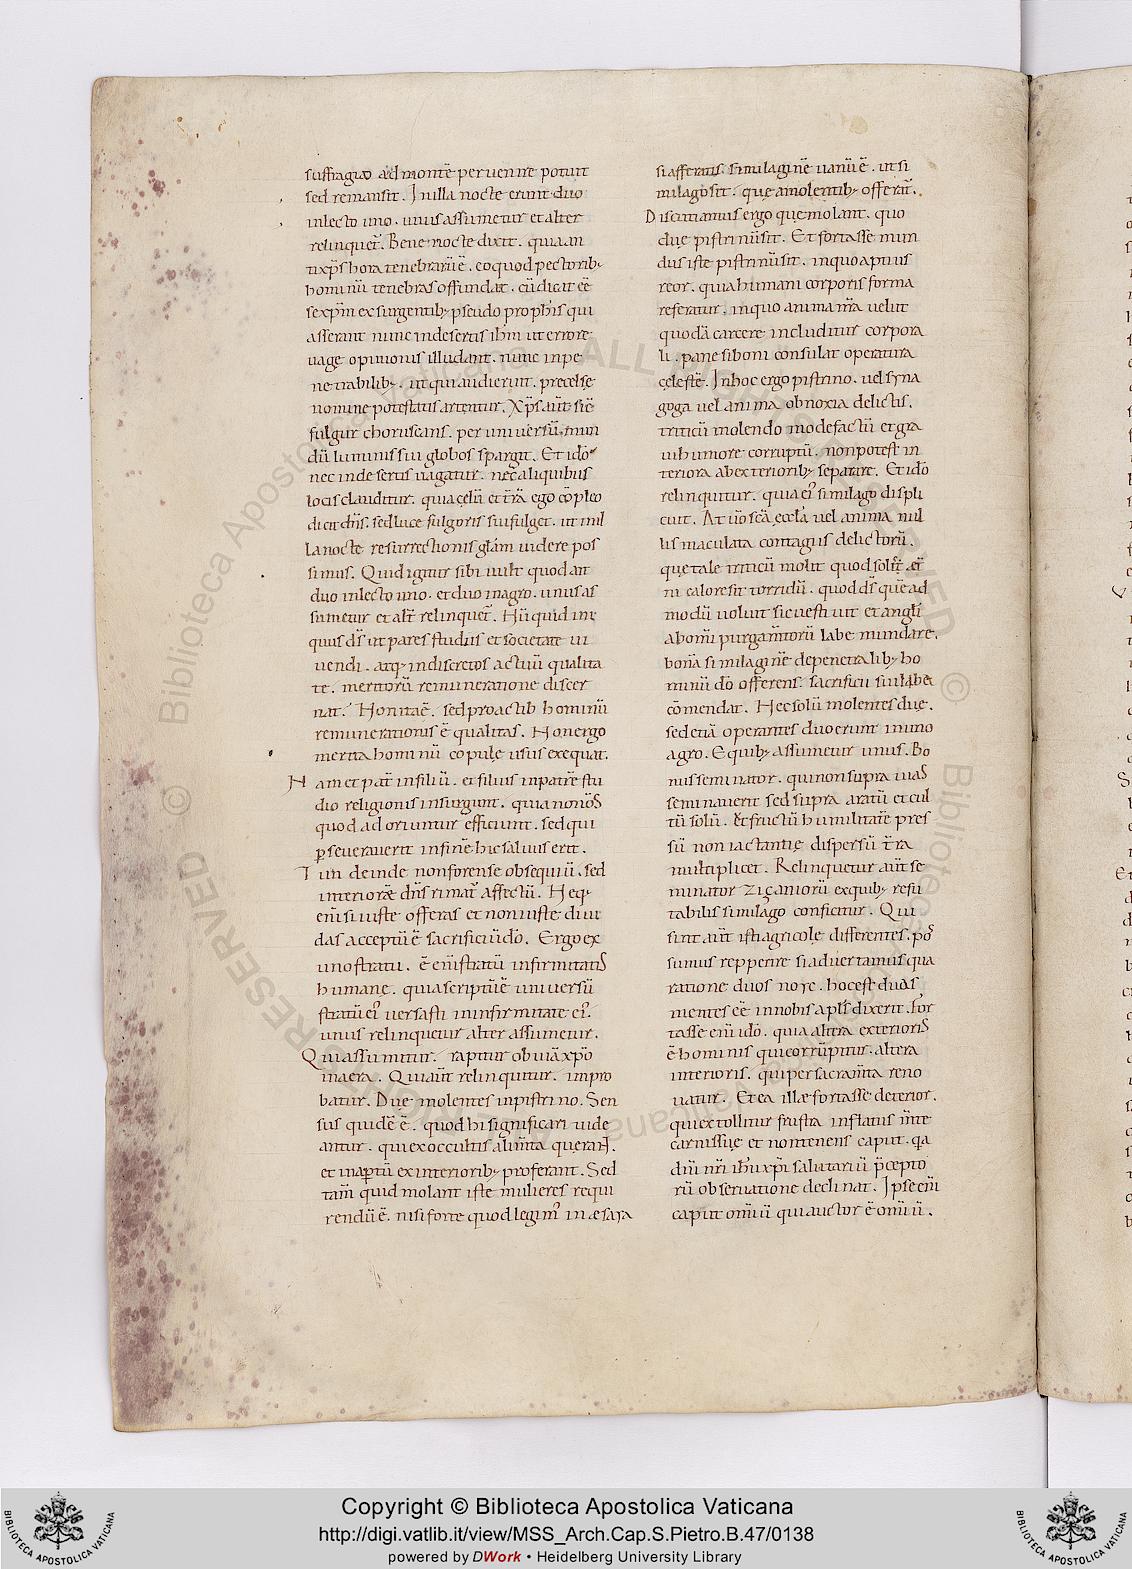 suffragio ad montē pervenire potuit
sed remansit. Jn illa nocte erunt duo
inlecto uno. unus assumetur et alter
relinquet̄. Bene nocte dixit. quia an
tixp̄s hora tenebrarū ē. eo quod pectorib;
hominū tenebras offundat. cū dicat eē
se xp̄m exsurgentib; pseudo prophis qui
asserant nunc in desertis ihm̄ ut errore
uagę opinionis illudant. nunc in pe
netralib;. ut qui audierint. precelsę
nomine potestatis artentur. Xp̄s aūt sic̄
fulgur choruscans. per universū mun
dū luminis sui globos spargit. Et idō
nec in desertis uagatur. nec aliquibus
locis clauditur. quia cęlū et t̄rā ego cōpleo
dicit dn̄s. sed luce fulgoris sui fulget. ut in il
la nocte resurrectionis glām uidere pos
simus. Quid igitur sibi uult quod ait
duo inlecto uno. et duo in agro. unus as
sumetur et alt̄ relinquet̄. Nū quid ini
quus dś ut pares studiis et societate ui
uendi. atq; indiscretos actuū qualita
te. meritorū remuneratione discer
nat. Non itaē. sed pro actib hominū
remunerationis ē qualitas. Non ergo
merita hominū copulę usus exęquat.
Nam et pat̄ in filiū. et filius in patrē stu
dio religionis insurgunt. quia non om̄s
quod adoriuntur efficiunt. sed qui
p̱severaverit in finē hic salvus erit.
Tun deinde non forense obsequiū. sed
interiorę dn̄s rimat̄ affectū. Neq;
em̄ si iuste offeras et non iuste divi
das acceptū ē sacrificiū dō. Ergo ex
uno stratu. ē em̄ stratū infirmitatis
humanę. quia scriptū ē universū
stratū ei' versasti in infirmitate ei'.
unus relinquetur alter assumetur.
Qui assumitur. rapitur obviā xp̄o
in aera. Qui aūt relinquitur. impro
batur. Duę molentes in pistrino. Sen
sus quidē ē. quod hi significari vide
antur. qui ex occultis alim̄ta querant.
et in aptū ex interiorib; proferant. Sed
tam̄ quid molant istę mulieres requi
rendū ē. nisi forte quod legim' in esaia
si afferatis similaginē vanū ē. ut si
milago sit. quę a molentib; offerat̄.
Discutiamus ergo quę molant. quo
due pistrinū sit. Et fortasse mun
dus iste pistrinū sit. in quo aptius
reor. quia humani corporis forma
referatur. in quo anima nr̄a velut
quodā carcere includitur corpora
li. pane si boni consulat operatura
cęlestē. Jn hoc ergo pistrino. vel syna
goga vel anima obnoxia delictis.
triticū molendo modefactū et gra
vi humore corruptū. non potest in
teriora ab exteriorib; separare. Et idō
relinquitur. quia ei' similago displi
cuit. At uō scā eccla vel anima nul
lis maculata contagiis delictorū.
quę tale triticū molit quod solis ęt̄
ni calore sit torridū. quod dś quē ad
modū voluit sic vestivit et angli
ab omī purgam̄torū labe mundare.
bonā similaginē de penetralib; ho
minū dō offerens. sacrificii sui liba
cōmendat. Nec solū molentes duę.
sed etiā operantes duo erunt in uno
agro. E quib; assumetur unus. Bo
nus seminator. qui non supra vias
seminaverit sed supra aratū et cul
tū solū. Et fructū humilitate pres
sū non iactantię dispersū t̄ra
multiplicet. Relinquetur aūt se
minator zizaniorū ex quib; resu
tabilis similago conficitur. Qui
sint aūt isti agricolę differentes. pos
sumus repperire si advertamus qua
ratione duos noye. hoc est duas
mentes eē in nobis apls̄ dixerit. For
tasse em̄ idō. quia altera exterioris
ē hominis qui corrūpitur. altera
interioris. qui per sacram̄ta reno
vatur. Et ea illa fortasse deterior.
qui extollitur frustra inflatus m̄te
carnis suę et non tenens caput. qā
dn̄i nr̄i ihū xp̄i salutariū p̄cepto
rū observatione declinat. Jpse em̄
caput omīū qui auctor ē omīū.
Copyright © Biblioteca Apostolica Vaticana
http://digi.vatlib.it/view/MSS_Arch.Cap.S.Pietro.B.47/0138
powered by DWork • Heidelberg University Library